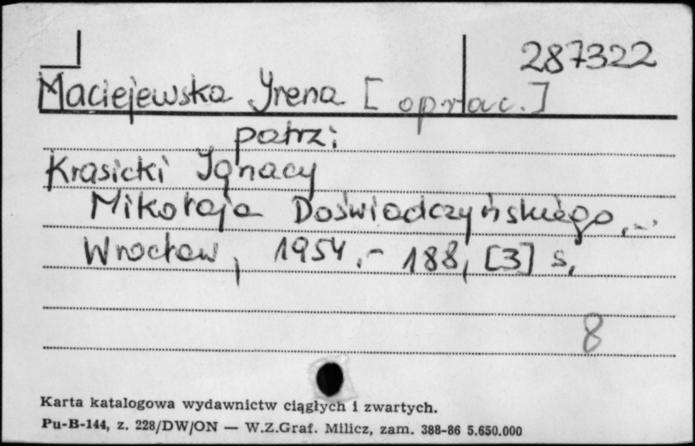 287322
Maciejewska Irena [oprac.]
patrz:
Krasicki Ignacy
Mikołaja Doświadczyńskiego...
Wrocław, 1954.- 188, [3] s.
8
Karta katalogowa wydawnictw ciągłych i zwartych.
Pu-B-144, z. 228/DW/ON — W.Z.Graf. Milicz, zam. 388-86 5.650.000